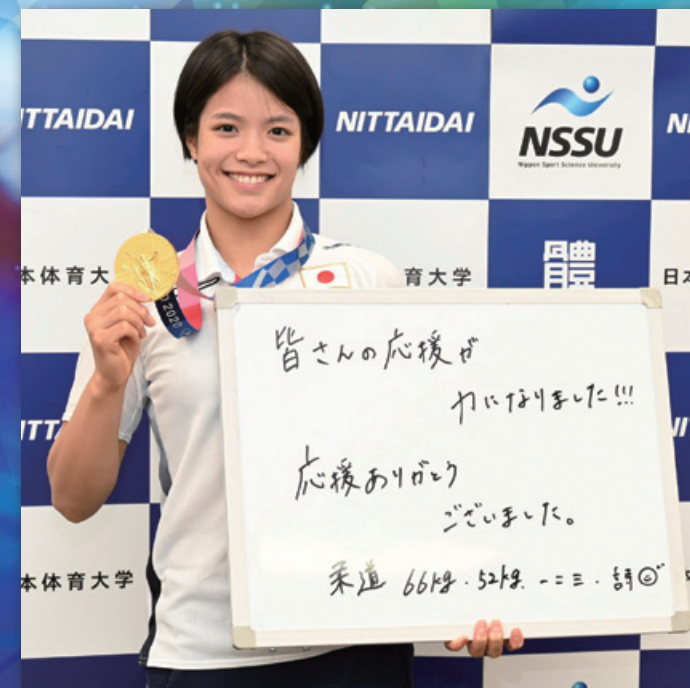 ITTAIDAI
NITTAIDAI
NSSU
Nippon Sport Science University
NI
本体育大
育大学
體
日本
2020
皆さんの応援が
力になりました!!!
応援ありがとう
ございました。
柔道 66kg・52kg. 一二三・詩
本体育大学